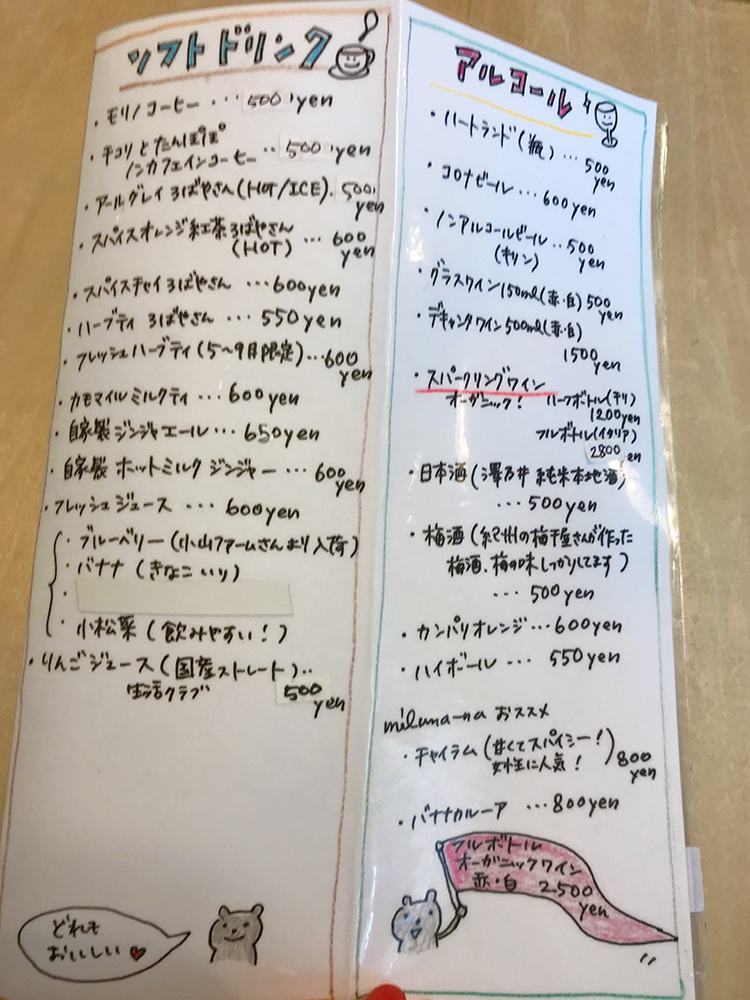 ソフトドリンク
・モリノコーヒー ･･･ 500 yen
・チコリとたんぽぽ
ノンカフェインコーヒー ･･ 500 yen
・アールグレイ ろばやさん(HOT/ICE). 500 yen
・スパイスオレンジ紅茶ろばやさん
(HOT) ･･･ 600 yen
・スパイスチャイ ろばやさん ･･･600yen
・ハーブティ ろばやさん ･･･ 550 yen
・フレッシュハーブティ(5〜9月限定)･･･600 yen
・カモマイルミルクティ ･･･ 600 yen
・自家製ジンジャエール ･･･ 650yen
・自家製 ホットミルク ジンジャー ･･･ 600 yen
・フレッシュジュース ･･･ 600 yen
・ブルーベリー(小山ファームさんより入荷)
・バナナ(きなこいり)
・
小松菜(飲みやすい!)
・りんごジュース(国産ストレート)･･
生活クラブ 500 yen
どれも
おいしい♥
アルコール
・ハートランド(瓶) ･･･ 500 yen
・コロナビール ･･･ 600 yen
・ノンアルコールビール ･･500 yen
(キリン)
・グラスワイン150ml(赤・白) 500 yen
・デキャンタワイン500ml(赤・白)
1500 yen
・スパークリングワイン
オーガニック! ハーフボトル(チリ)
1200yen
フルボトル(イタリア)
2800 en
・日本酒(澤乃井 純米本地酒)
･･･ 500yen
・梅酒(紀州の梅干屋さんが作った
梅酒、梅の味しっかりしてます)
･･･ 500 yen
・カンパリオレンジ ･･･600yen
・ハイボール ･･･ 550 yen
miluna-na おススメ
・チャイラム(甘くてスパイシー!
女性に人気!) 800 yen
・バナナカルーア ･･･800yen
フルボトル
オーガニックワイン
赤・白 2,500
yen